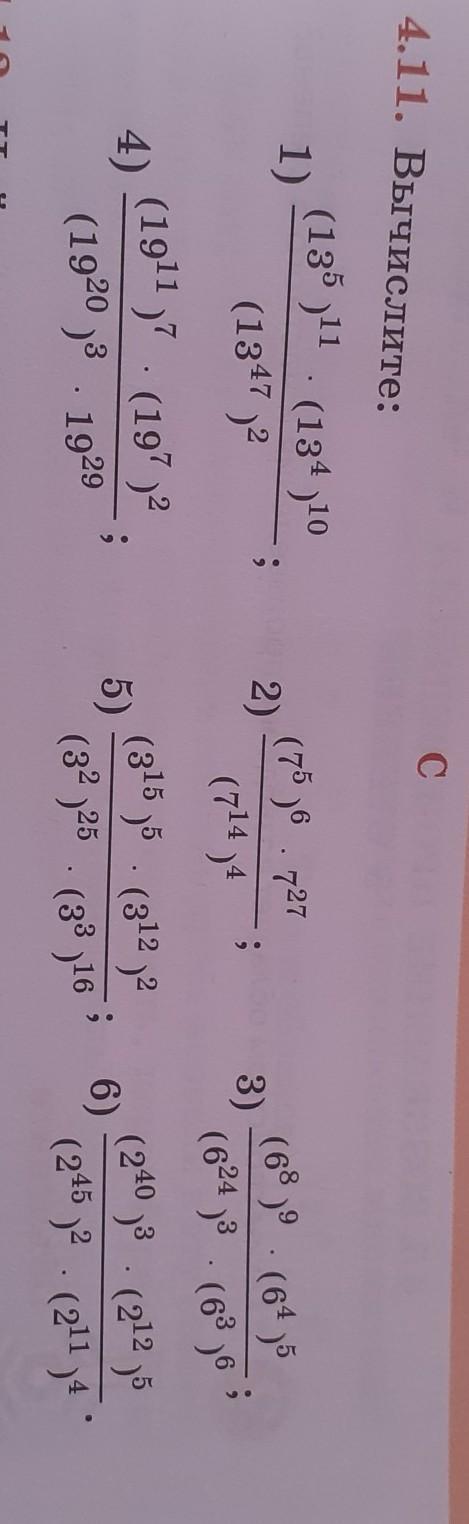 С
4.11. Вычислите:
1) (13⁵)¹¹ · (13⁴)¹⁰ / (13⁴⁷)² ; 2) (7⁵)⁶ · 7²⁷ / (7¹⁴)⁴ ; 3) (6⁸)⁹ · (6⁴)⁵ / (6²⁴)³ · (6³)⁶ ;
4) (19¹¹)⁷ · (19⁷)² / (19²⁰)³ · 19²⁹ ; 5) (3¹⁵)⁵ · (3¹²)² / (3²)²⁵ · (3³)¹⁶ ; 6) (2⁴⁰)³ · (2¹²)⁵ / (2⁴⁵)² · (2¹¹)⁴ .